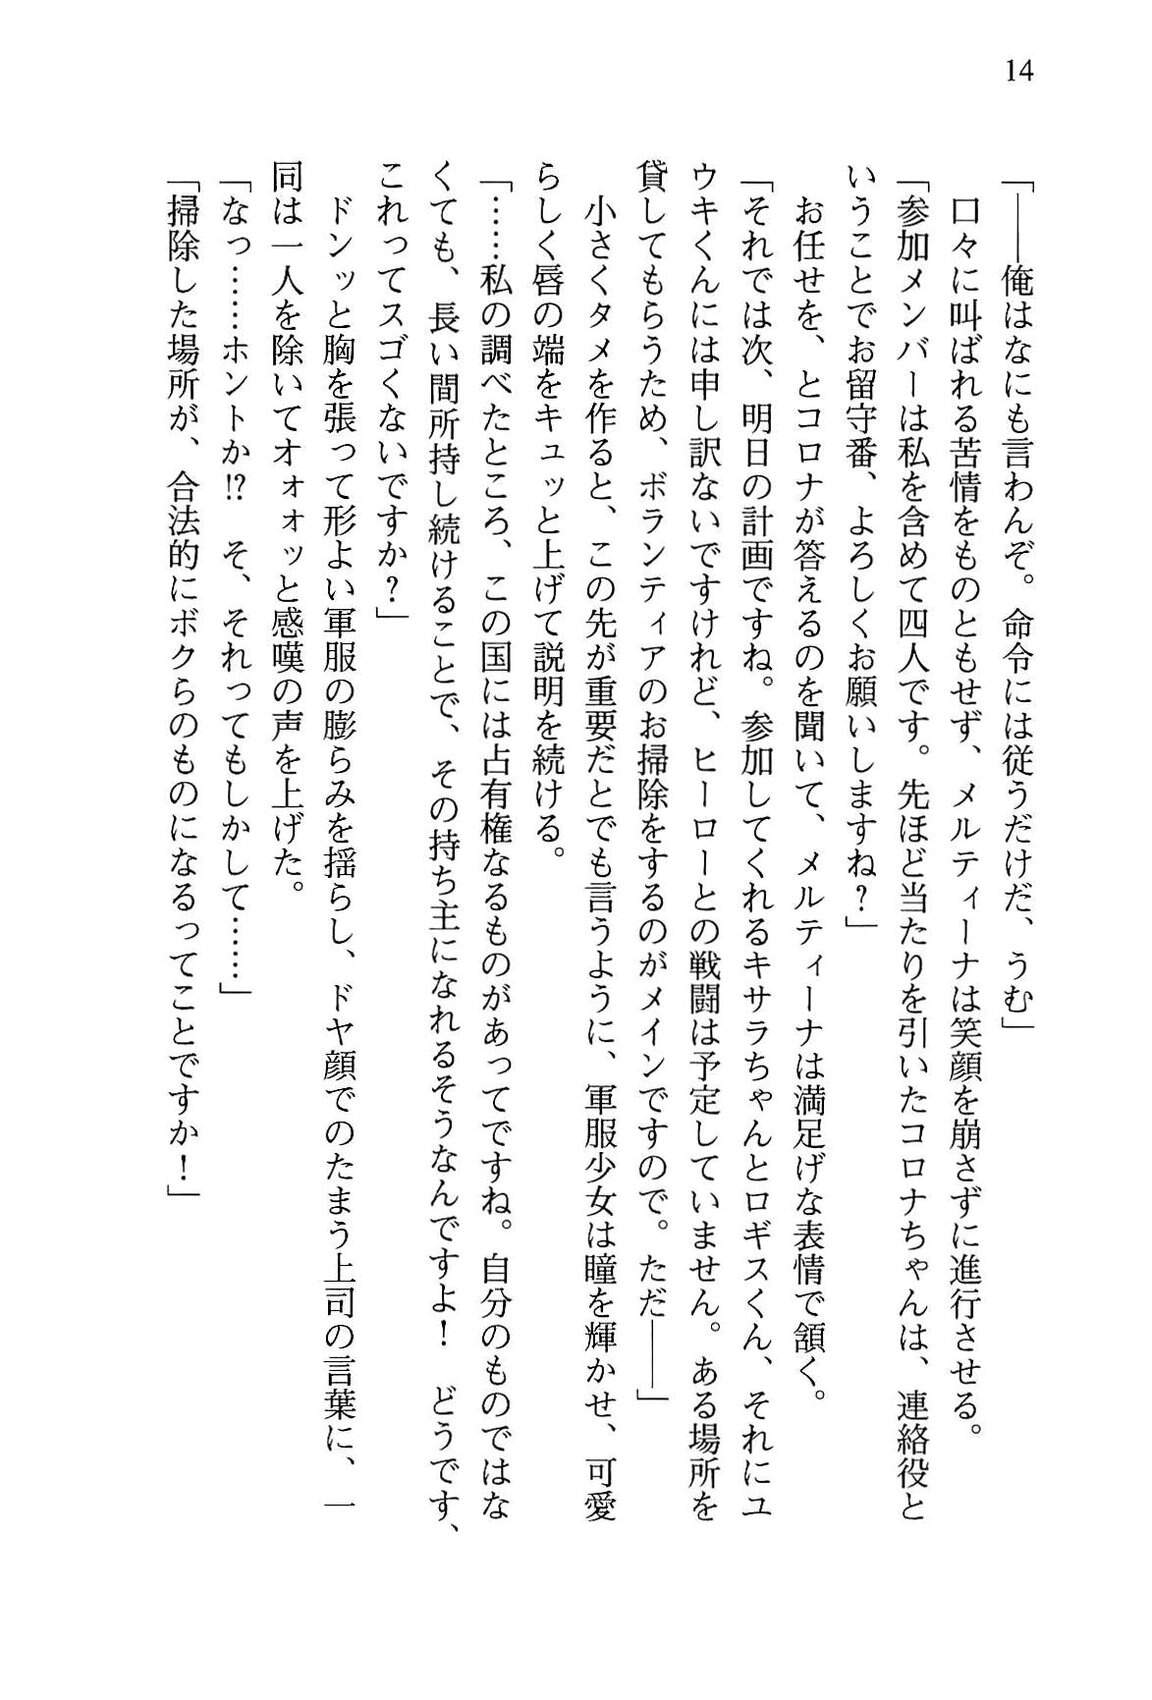 14
「――俺はなにも言わんぞ。命令には従うだけだ、うむ」
　口々に叫ばれる苦情をものともせず、メルティーナは笑顔を崩さずに進行させる。
「参加メンバーは私を含めて四人です。先ほど当たりを引いたコロナちゃんは、連絡役と
いうことでお留守番、よろしくお願いしますね？」
　お任せを、とコロナが答えるのを聞いて、メルティーナは満足げな表情で頷く。
「それでは次、明日の計画ですね。参加してくれるキサラちゃんとロギスくん、それにユ
ウキくんには申し訳ないですけれど、ヒーローとの戦闘は予定していません。ある場所を
貸してもらうため、ボランティアのお掃除をするのがメインですので。ただ――」
　小さくタメを作ると、この先が重要だとでも言うように、軍服少女は瞳を輝かせ、可愛
らしく唇の端をキュッと上げて説明を続ける。
「……私の調べたところ、この国には占有権なるものがあってですね。自分のものではな
くても、長い間所持し続けることで、その持ち主になれるそうなんですよ！　どうです、
これってスゴくないですか？」
　ドンッと胸を張って形よい軍服の膨らみを揺らし、ドヤ顔でのたまう上司の言葉に、一
同は一人を除いてオォォッと感嘆の声を上げた。
「なっ……ホントか!?　そ、それってもしかして……」
「掃除した場所が、合法的にボクらのものになるってことですか！」